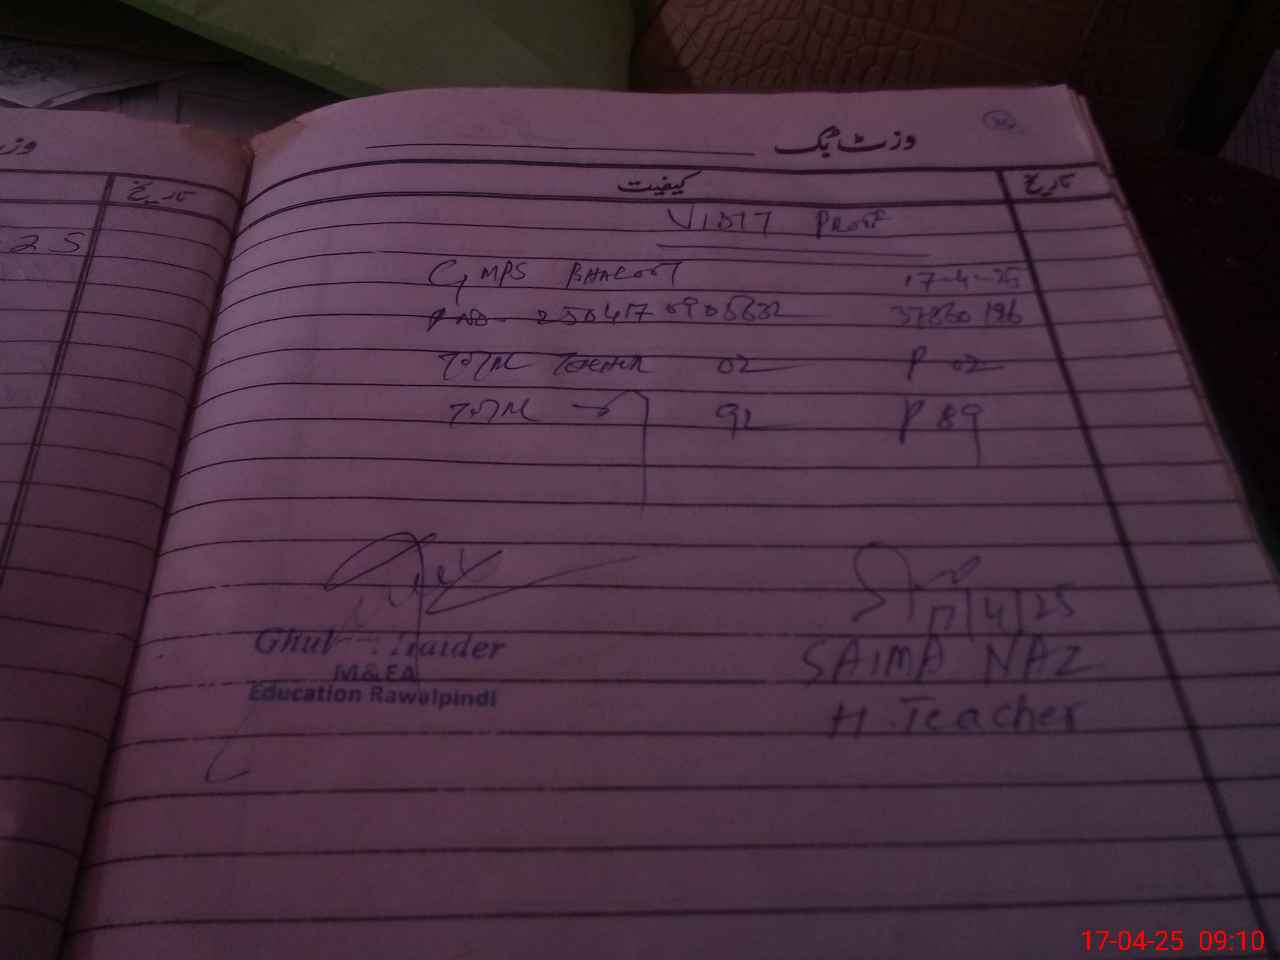 وزٹ بک
تاریخ
کیفیت
تاریخ
25
VISIT PROOF
GMPS 17-4-25
NO- 250417 37330196
TOTAL TEACHER 02 P 02
TOTAL 92 P 89
17/4/25
Haider
SAIMA NAZ
M&EA
Education Rawalpindi
H. Teacher
17-04-25 09:10